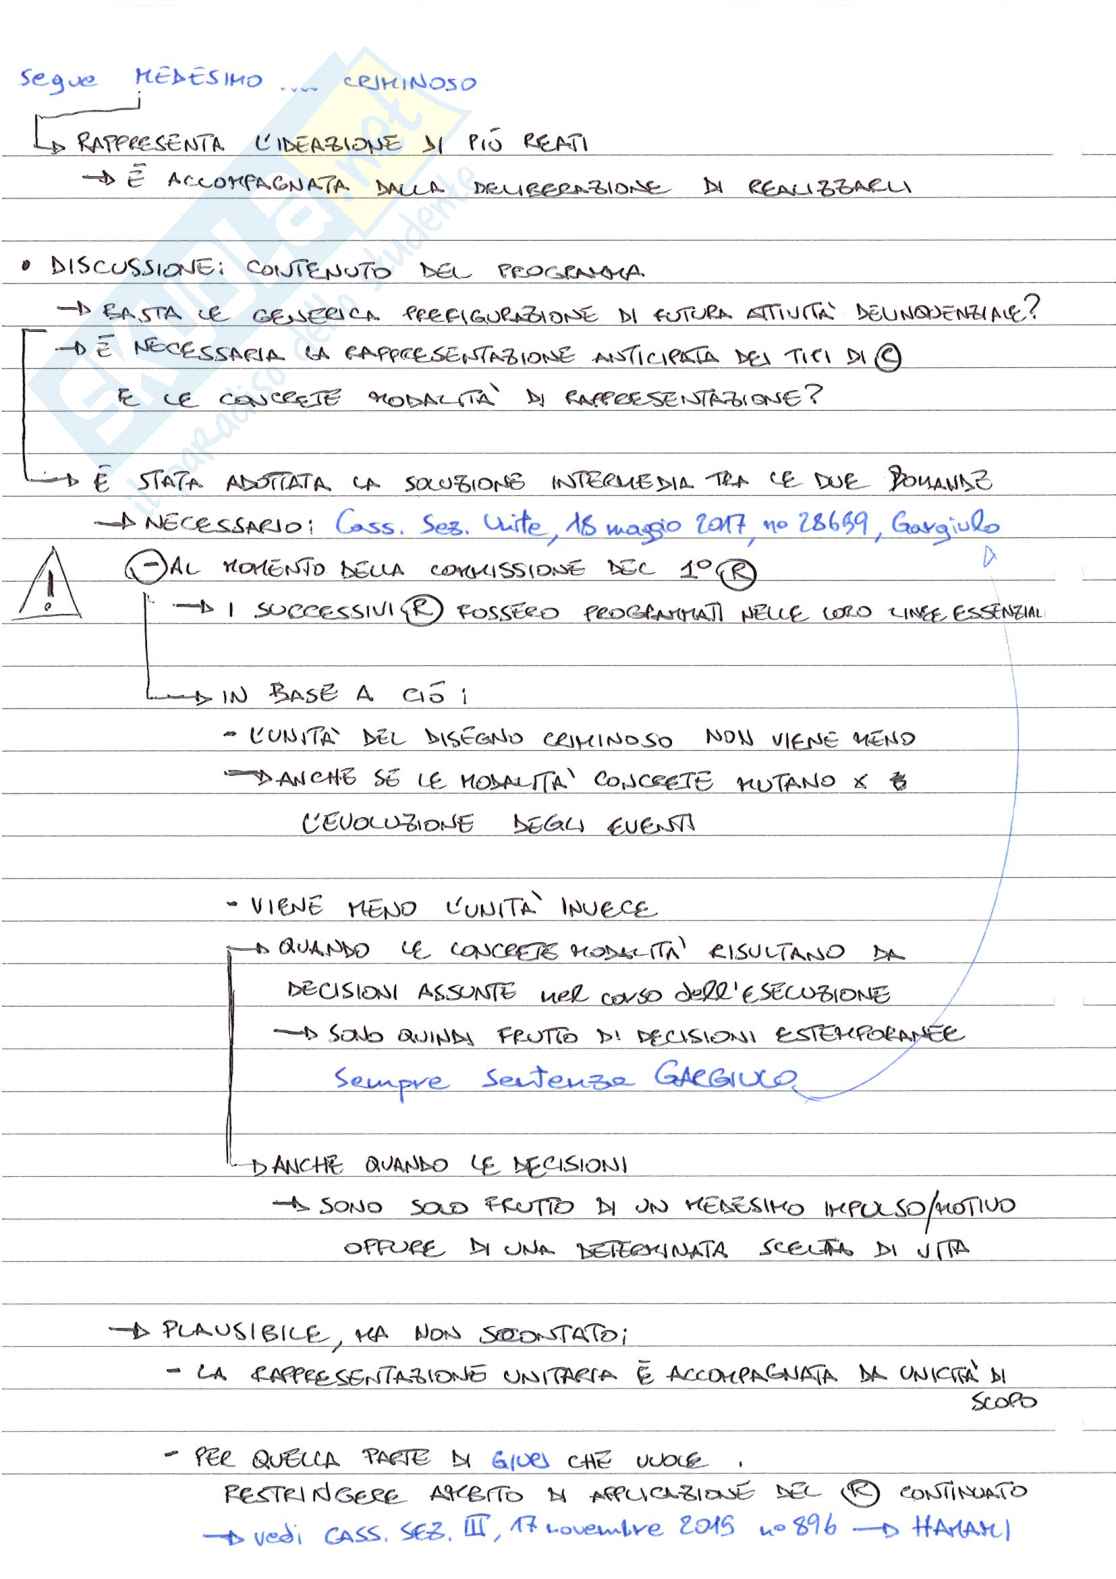 segue MEDESIMO .... CRIMINOSO
↳ RAPPRESENTA L'IDEAZIONE DI PIÙ REATI
→ È ACCOMPAGNATA DALLA DELIBERAZIONE DI REALIZZARLI
• DISCUSSIONE: CONTENUTO DEL PROGRAMMA
→ BASTA LE GENERICA PREFIGURAZIONE DI FUTURA ATTIVITÀ DELINQUENZIALE?
→ È NECESSARIA LA RAPPRESENTAZIONE ANTICIPATA DEI TIPI DI Ⓡ
E LE CONCRETE MODALITÀ DI RAPPRESENTAZIONE?
→ È STATA ADOTTATA LA SOLUZIONE INTERMEDIA TRA LE DUE DOMANDE
→ NECESSARIO: Cass. Sez. Unite, 18 maggio 2017, no 28659, Gargiulo
⊖ AL MOMENTO DELLA COMMISSIONE DEL 1° Ⓡ
!
→ I SUCCESSIVI Ⓡ FOSSERO PROGRAMMATI NELLE LORO LINEE ESSENZIAL
→ IN BASE A CIÒ:
- L'UNITÀ DEL DISEGNO CRIMINOSO NON VIENE MENO
→ ANCHE SE LE MODALITÀ CONCRETE MUTANO x
L'EVOLUZIONE DEGLI EVENTI
- VIENE MENO L'UNITÀ INVECE
→ QUANDO LE CONCRETE MODALITÀ RISULTANO DA
DECISIONI ASSUNTE nel corso dell'ESECUZIONE
→ SONO QUINDI FRUTTO DI DECISIONI ESTEMPORANEE
Sempre Sentenza GARGIULO
→ ANCHE QUANDO LE DECISIONI
→ SONO SOLO FRUTTO DI UN MEDESIMO IMPULSO/MOTIVO
OPPURE DI UNA DETERMINATA SCELTA DI VITA
→ PLAUSIBILE, MA NON SCONTATO:
- LA RAPPRESENTAZIONE UNITARIA È ACCOMPAGNATA DA UNICITÀ DI
SCOPO
- PER QUELLA PARTE DI GIURI CHE VUOLE
RESTRINGERE AMBITO DI APPLICAZIONE DEL Ⓡ CONTINUATO
→ vedi CASS. SEZ. III, 17 novembre 2015 no 896 → HAMAMI
SKUOLA.net
il paradiso dello studente